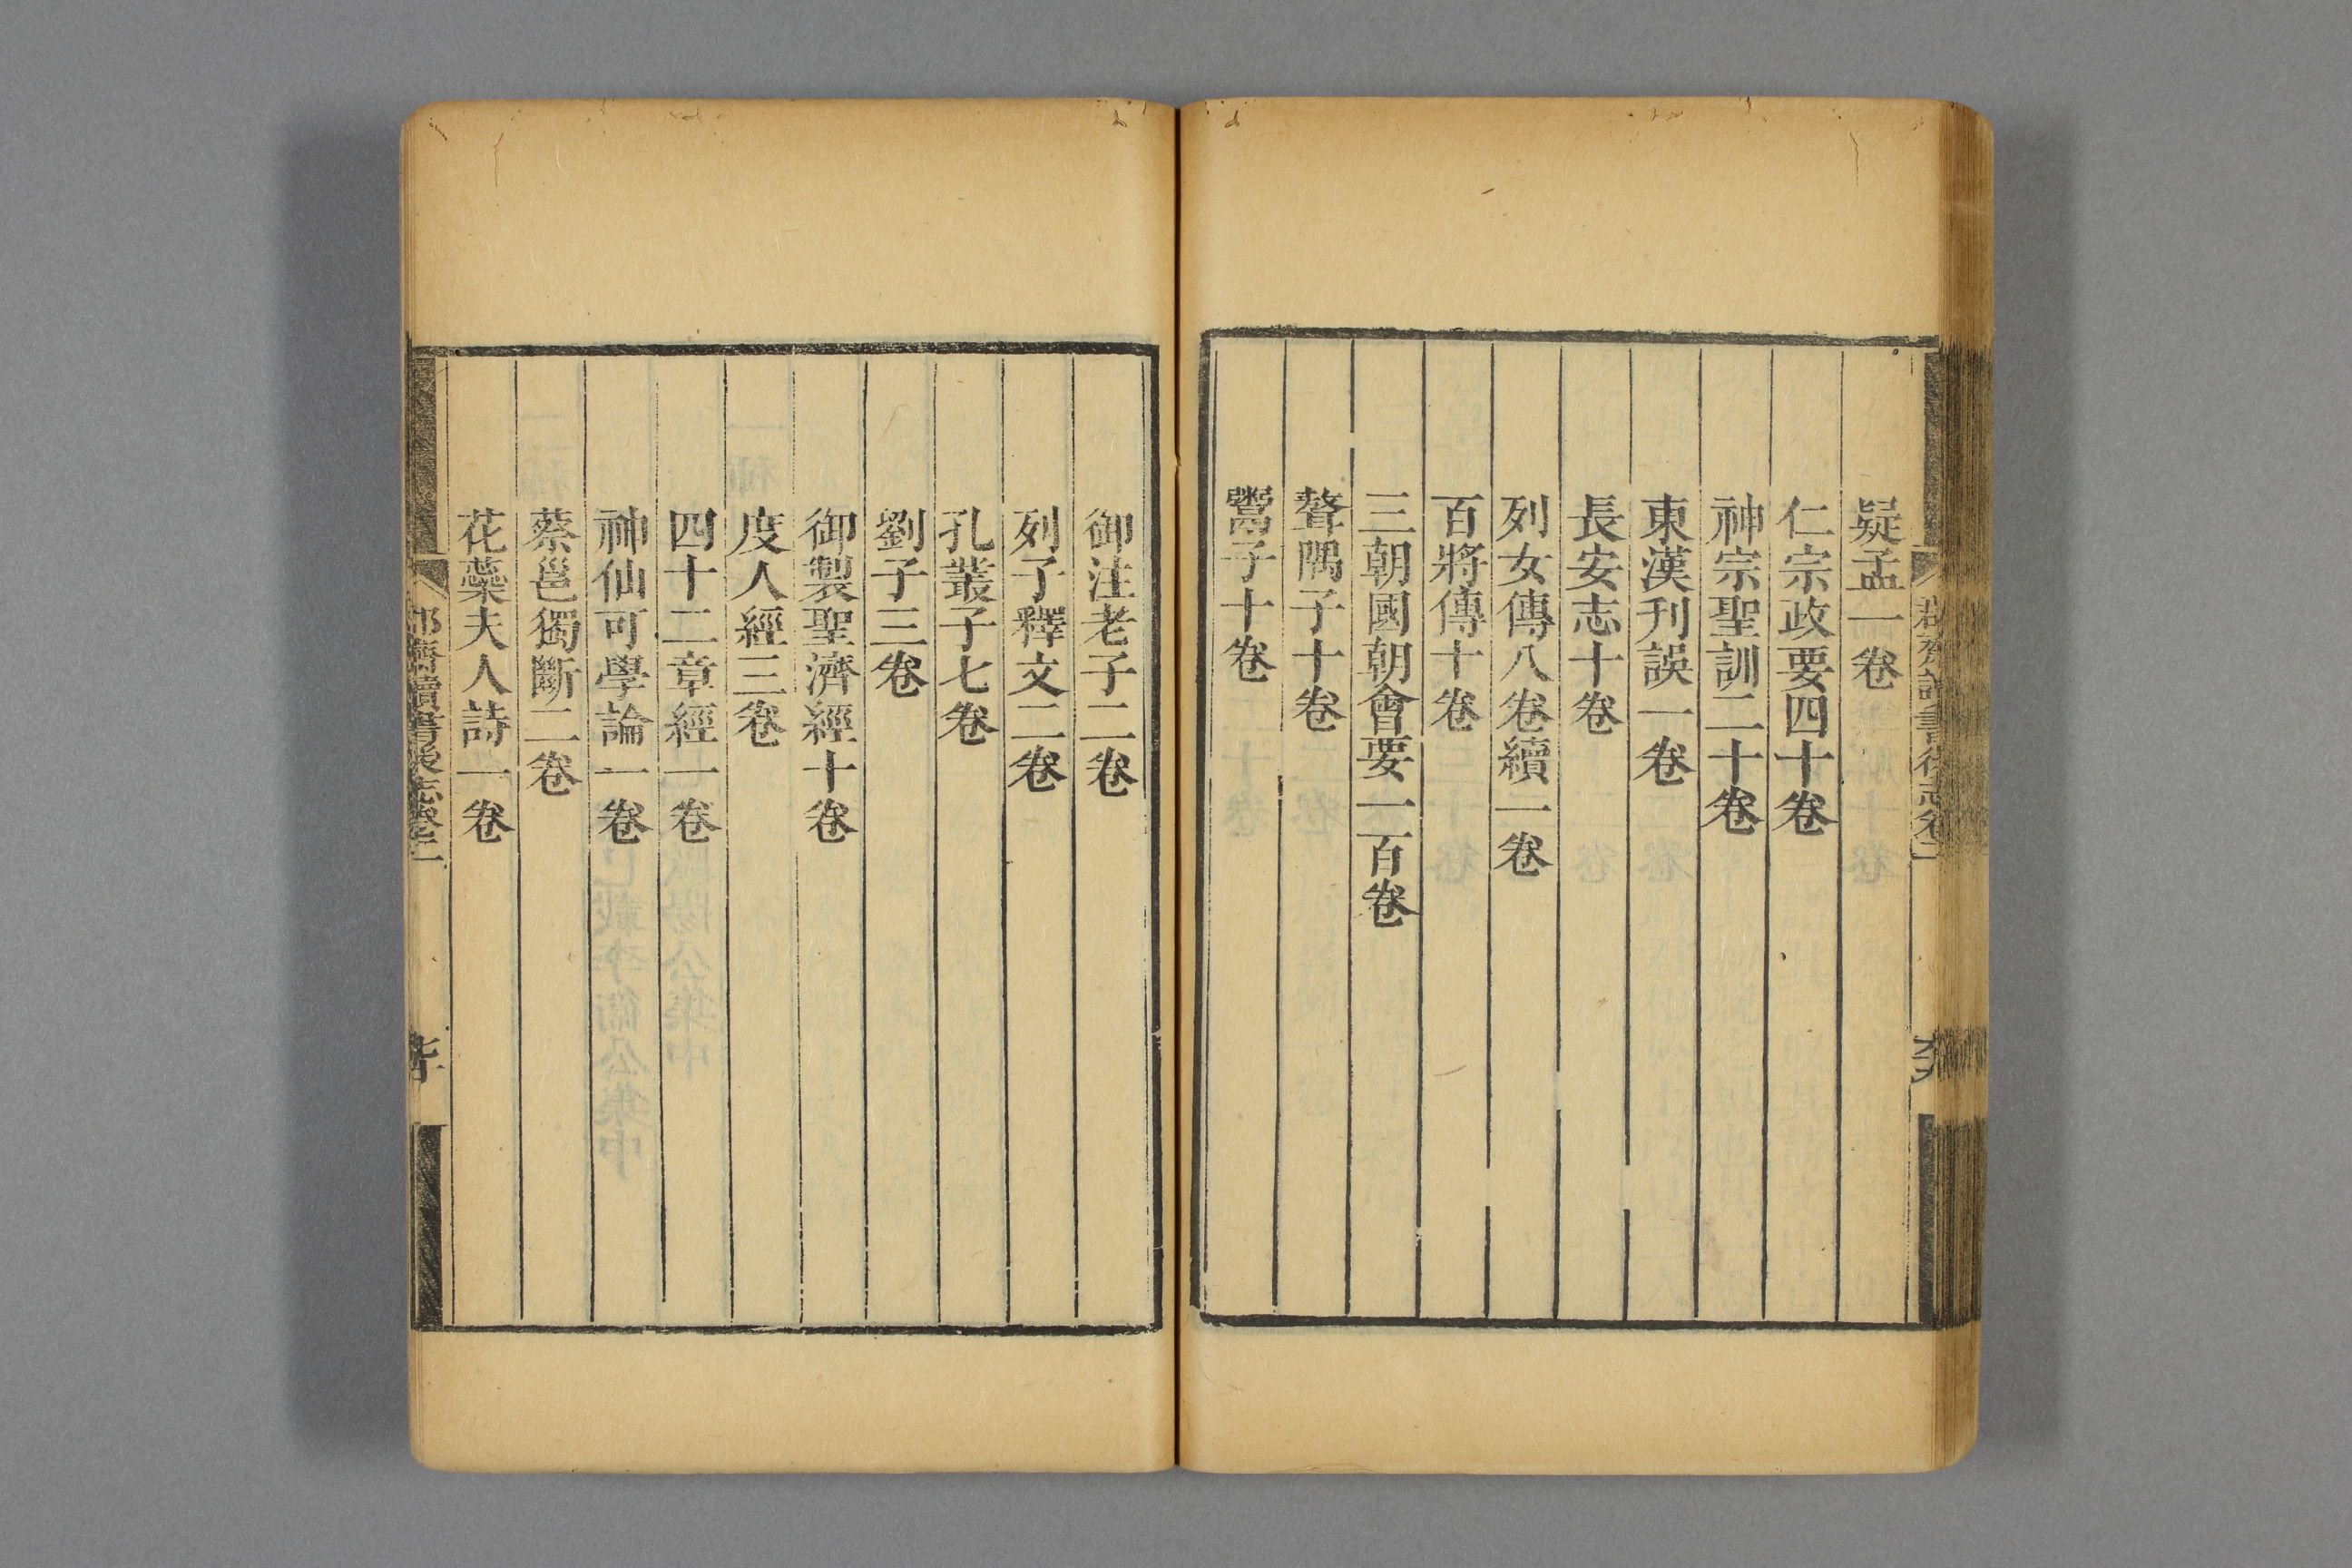 疑孟一卷
仁宗政要四十卷
神宗聖訓二十卷
東漢刊誤一卷
長安志十卷
列女傳八卷續一卷
百將傳十卷
三朝國朝會要一百卷
聱隅子十卷
鬻子十卷
御注老子二卷
列子釋文二卷
孔叢子七卷
劉子三卷
御製聖濟經十卷
度人經三卷
四十二章經一卷
神仙可學論一卷
蔡邕獨斷二卷
花蘂夫人詩一卷
郡齋讀書後志卷二